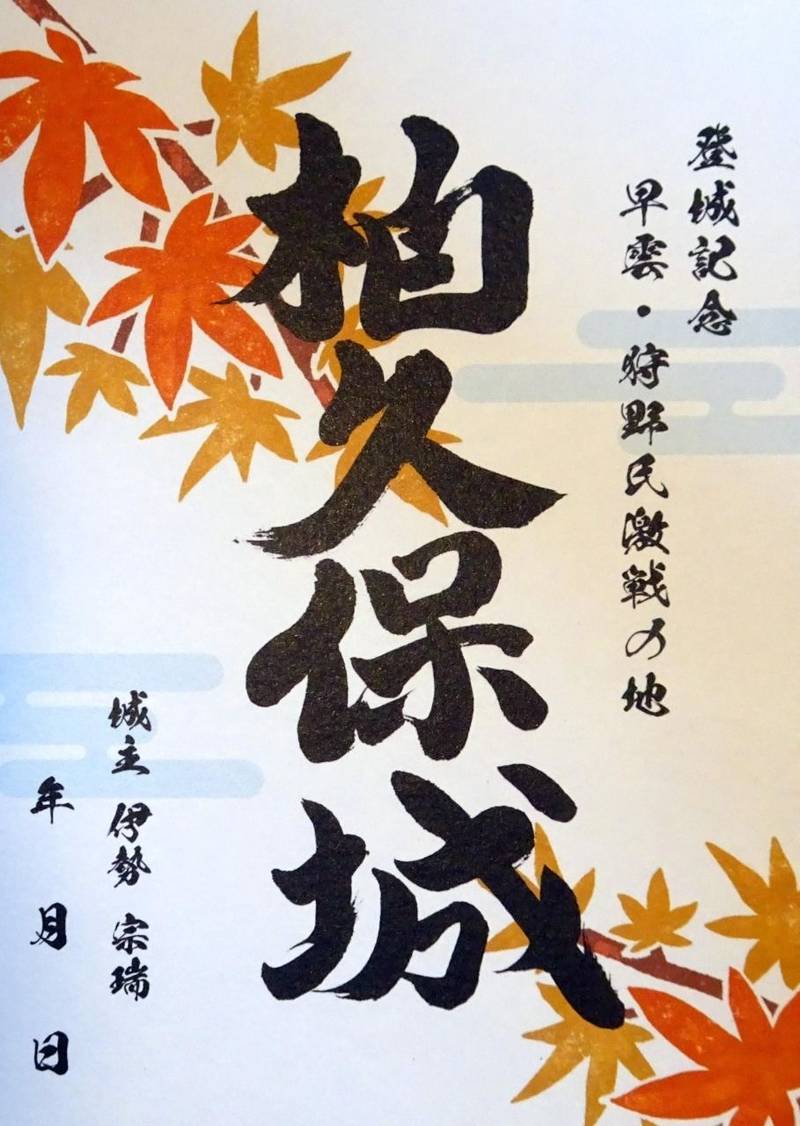 登城記念
早雲・狩野氏激戦の地
柏久保城
城主 伊勢 宗瑞
年 月 日